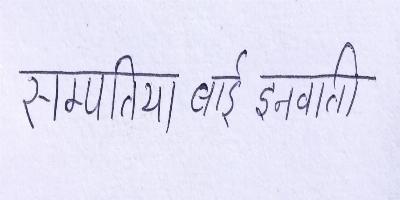 सम्पतिया बाई इनवाती